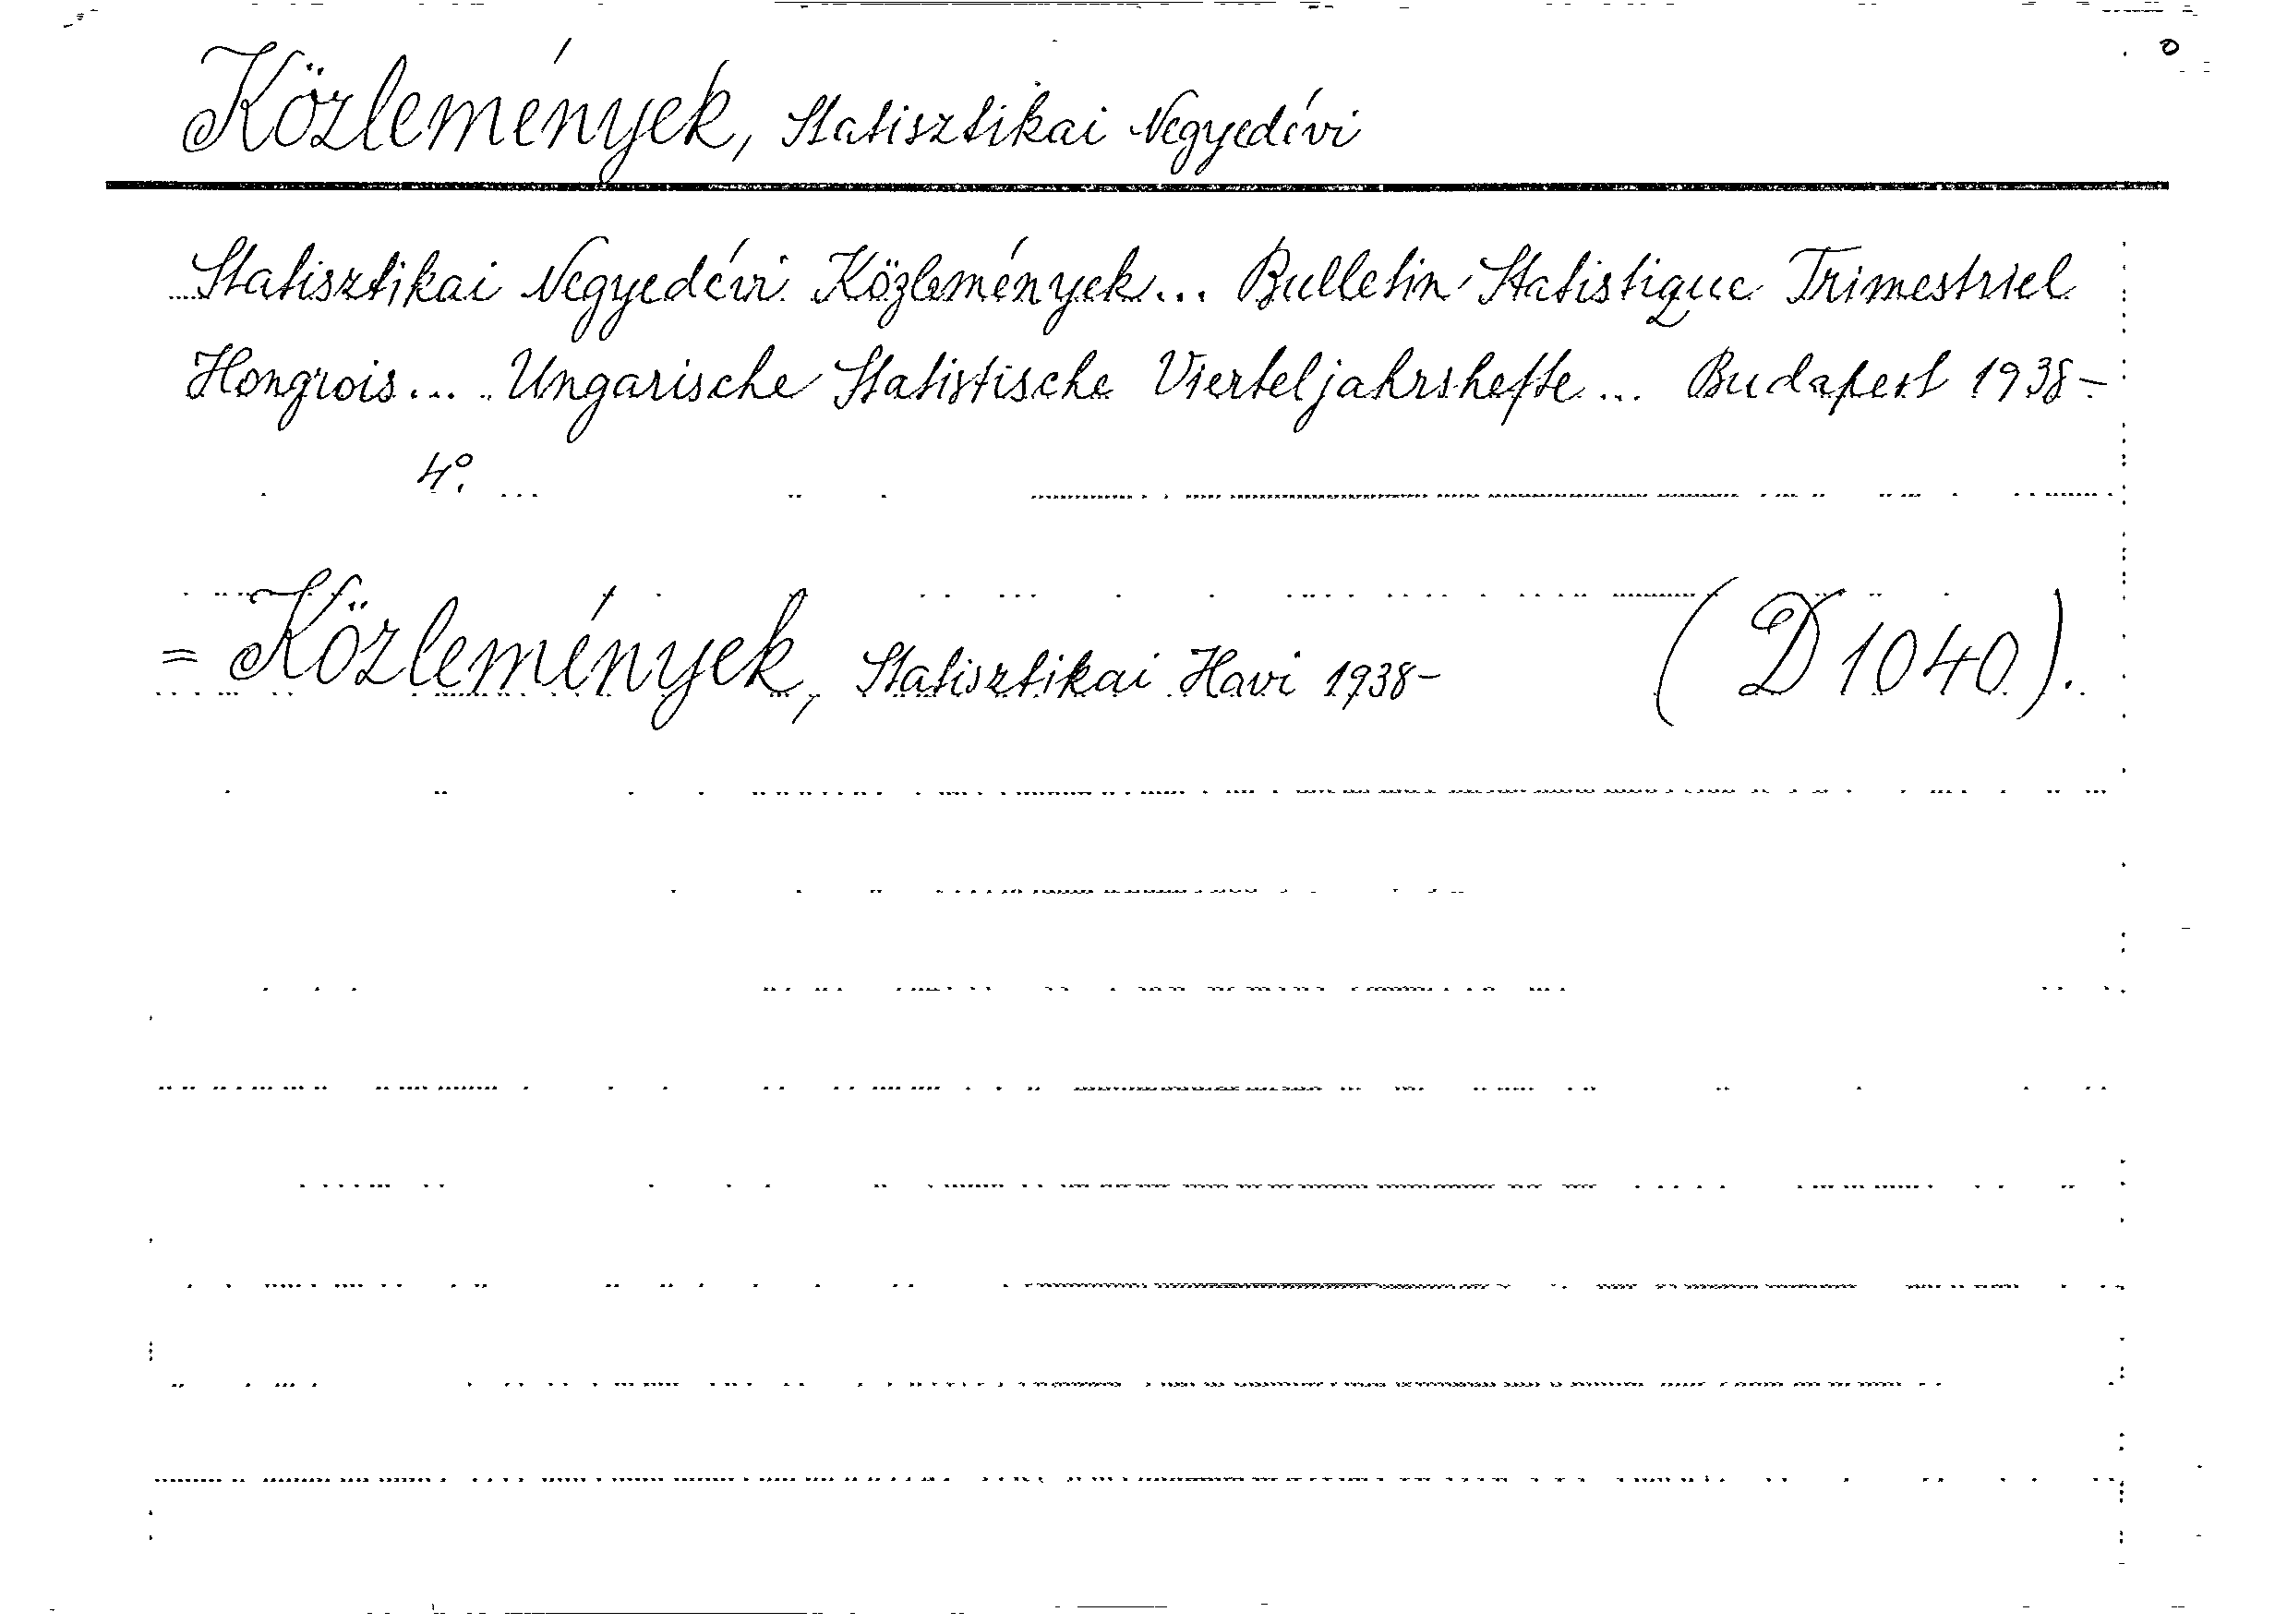 Közlemények, Statisztikai Negyedévi
Statisztikai Negyedévi Közlemények... Bulletin Statistique Trimestriel
Hongrois... Ungarische Statistische Vierteljahrshefte... Budapest 1938-
4°.
= Közlemények, Statisztikai Havi 1938- (D 1040).